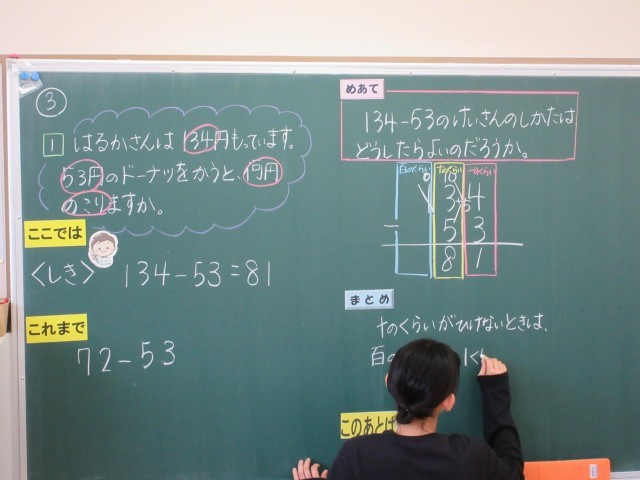 ③
1 はるかさんは134円もっています。
53円のドーナツをかうと、何円
のこりますか。
ここでは
〈しき〉 134-53=81
これまで
72-53
めあて
134-53のけいさんのしかたは
どうしたらよいのだろうか。
百のくらい 十のくらい 一のくらい
0 10
1 3 4
+5
- 5 3
8 1
まとめ
十のくらいがひけないときは、
百の 1く
このあとは